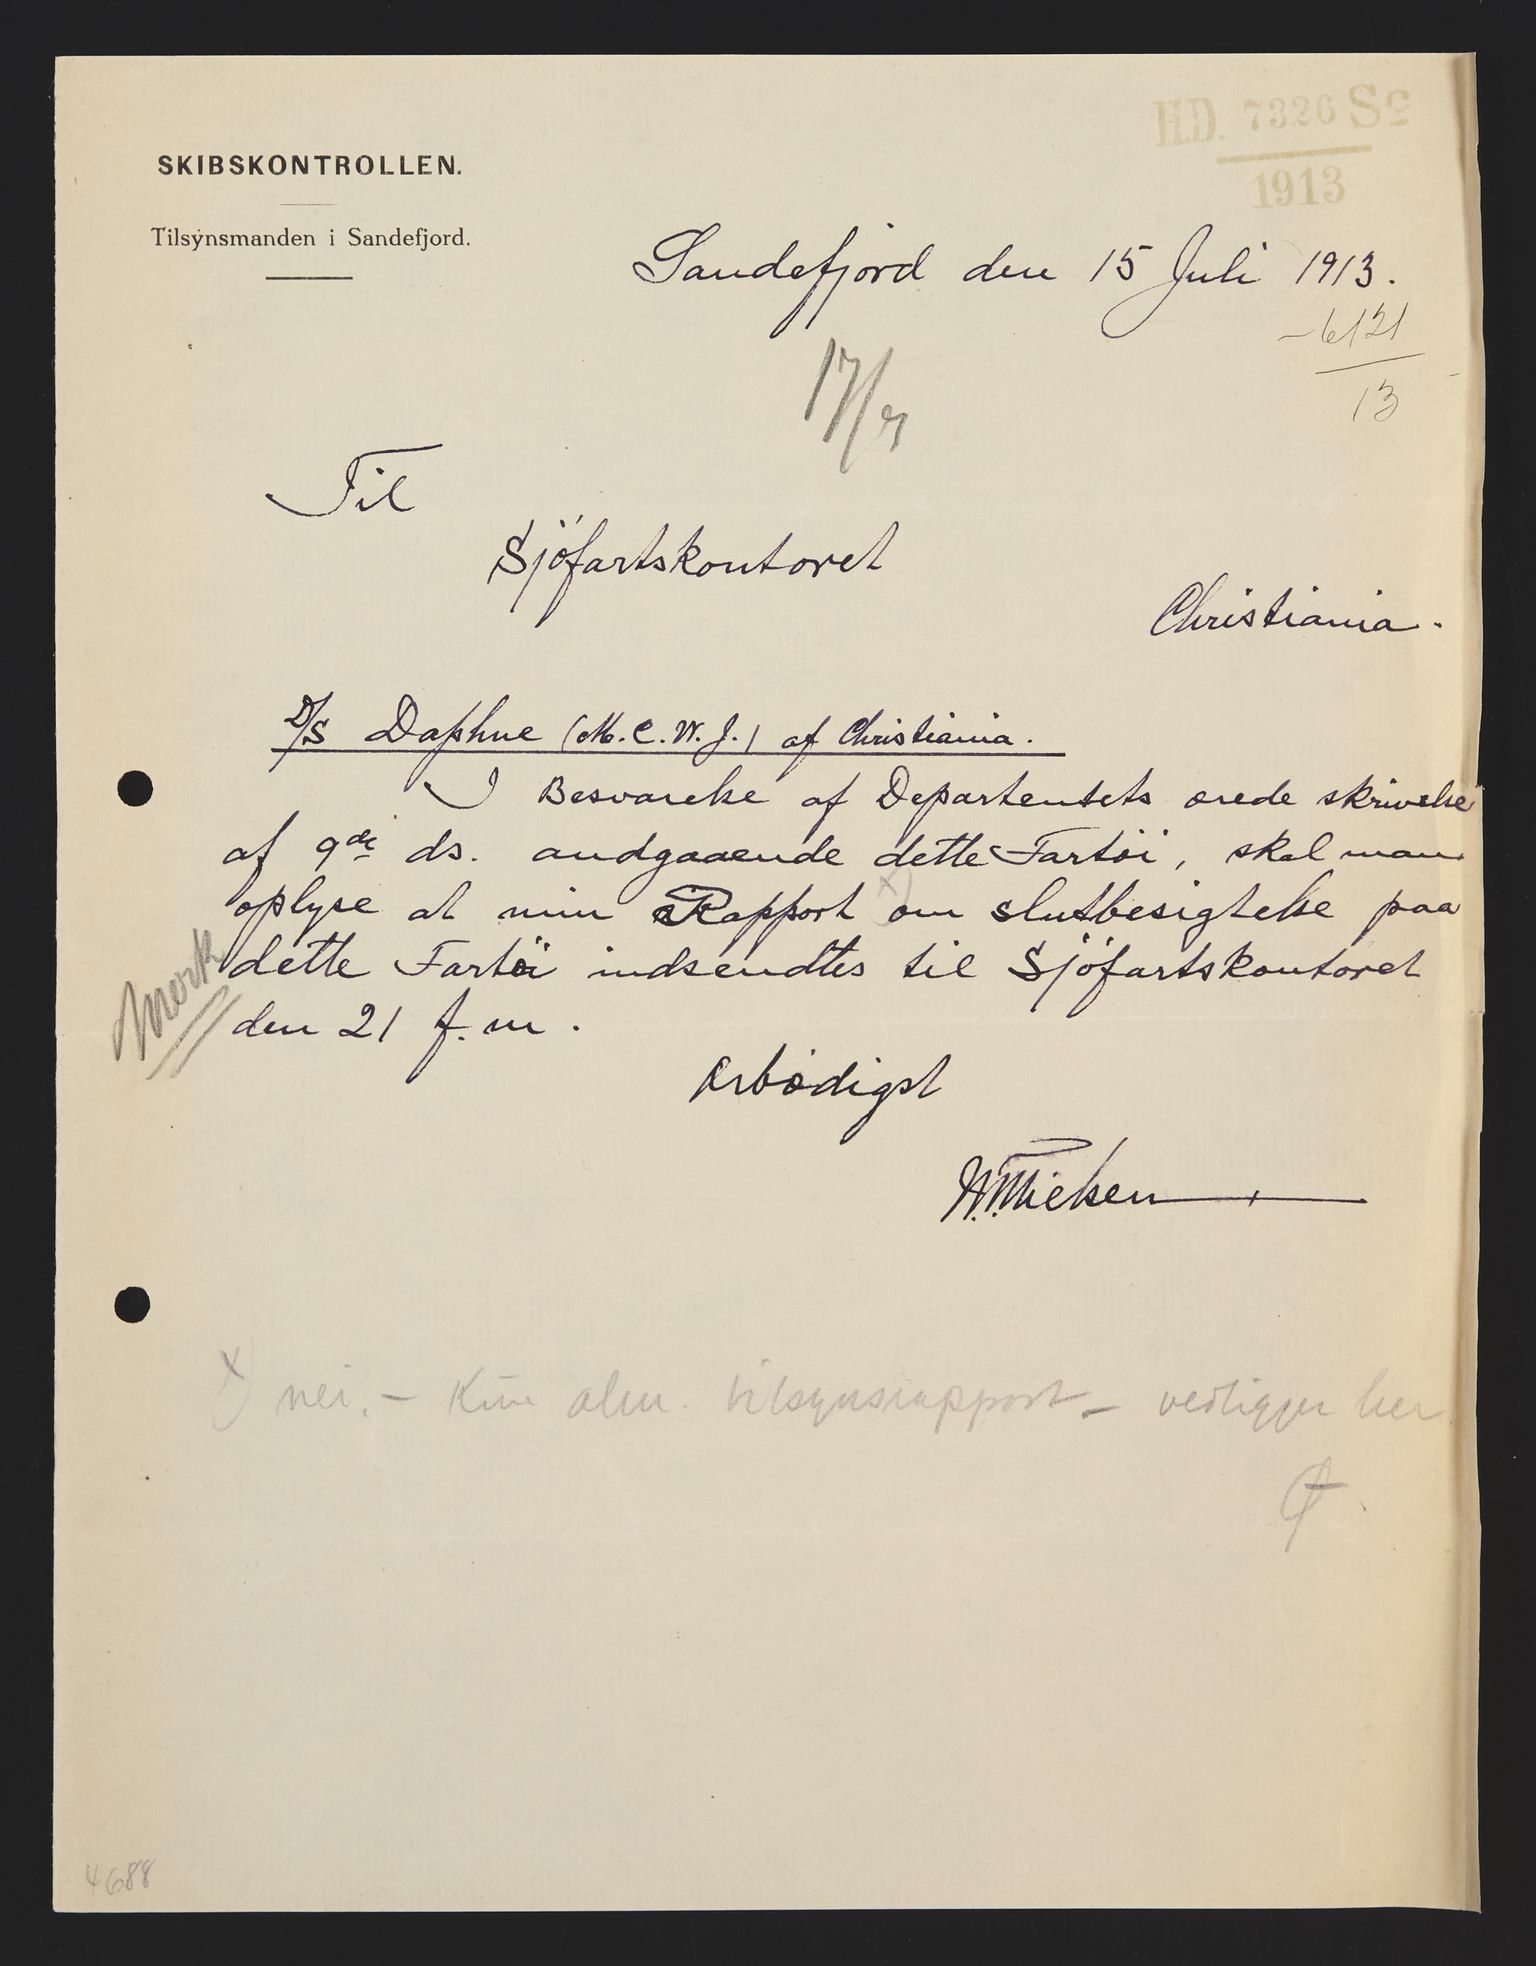 H.D. 7326 Sc
1913
SKIBSKONTROLLEN.
Tilsynsmanden i Sandefjord.
Sandefjord den 15 Juli 1913.
-6121
13
17/7
Til
Sjöfartskontoret
Christiania.
D/S Daphne (M.C.W.J.) af Christiania.
I Besvarelse af Departentets ærede skrivelse
af 9de ds. andgaaende dette Fartöi, skal man
oplyse at min Rapport x) om slutbesigtelse paa
dette Fartöi indsendtes til Sjöfartskontoret
den 21 f.m.
Mørk
Ærbødigst
x) nei. - Kun alm. tilsynsrapport - vedligger her
4688